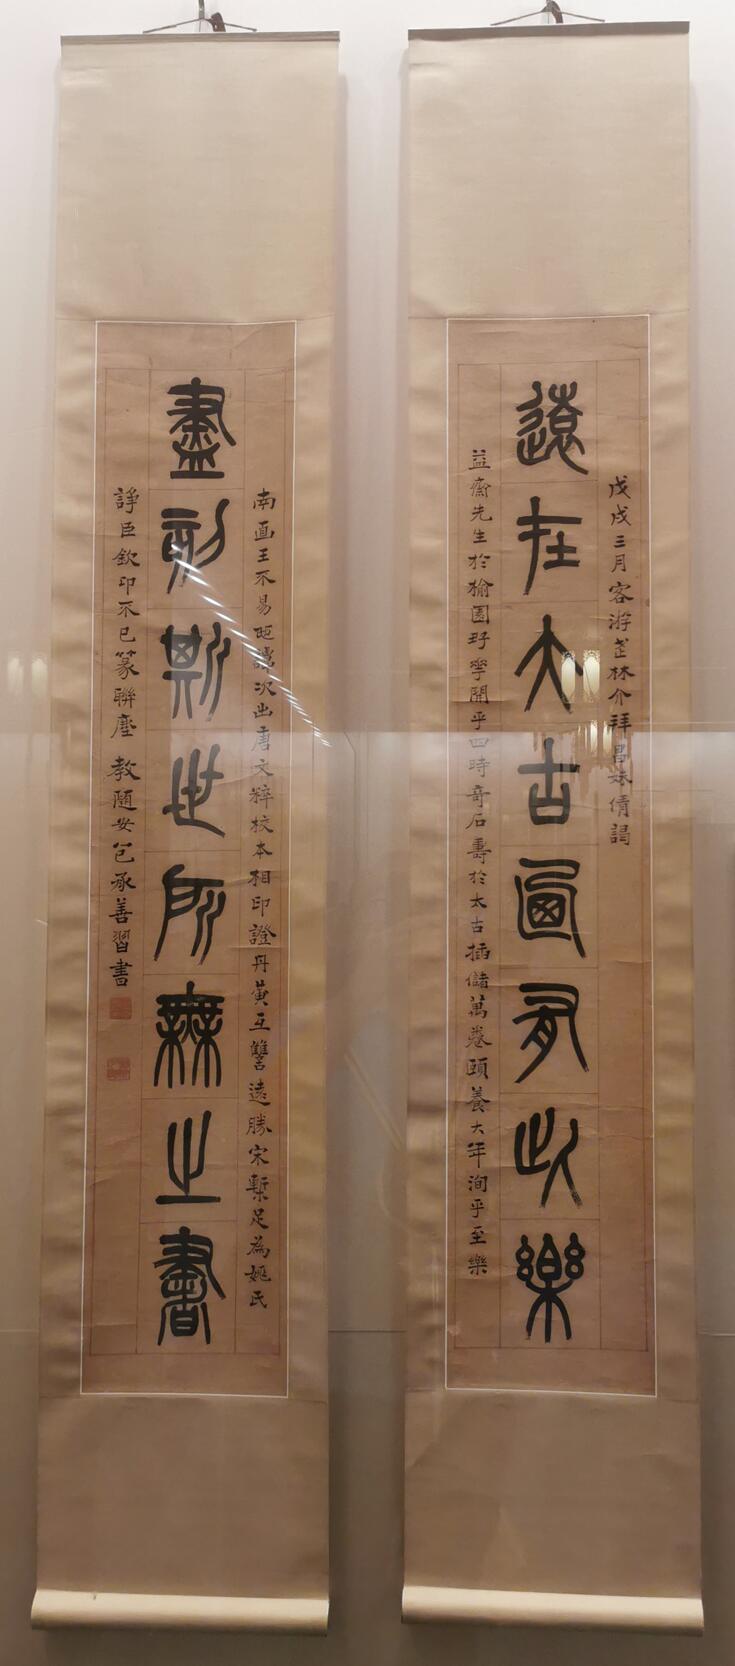 戊戌三月客游林介拜昌妹倩謁
遠在大古圖有此樂
益齋先生於榆園開乎四時奇石壽於太古插儲萬卷頤養大年洵乎至樂
南直王不易讌次出唐文粹校本相印證丹黃互讐遠勝宋槧足為姚氏
盡刻斯世所無之書
諍臣欽印不已篆聯塵 教隨安包承善習書